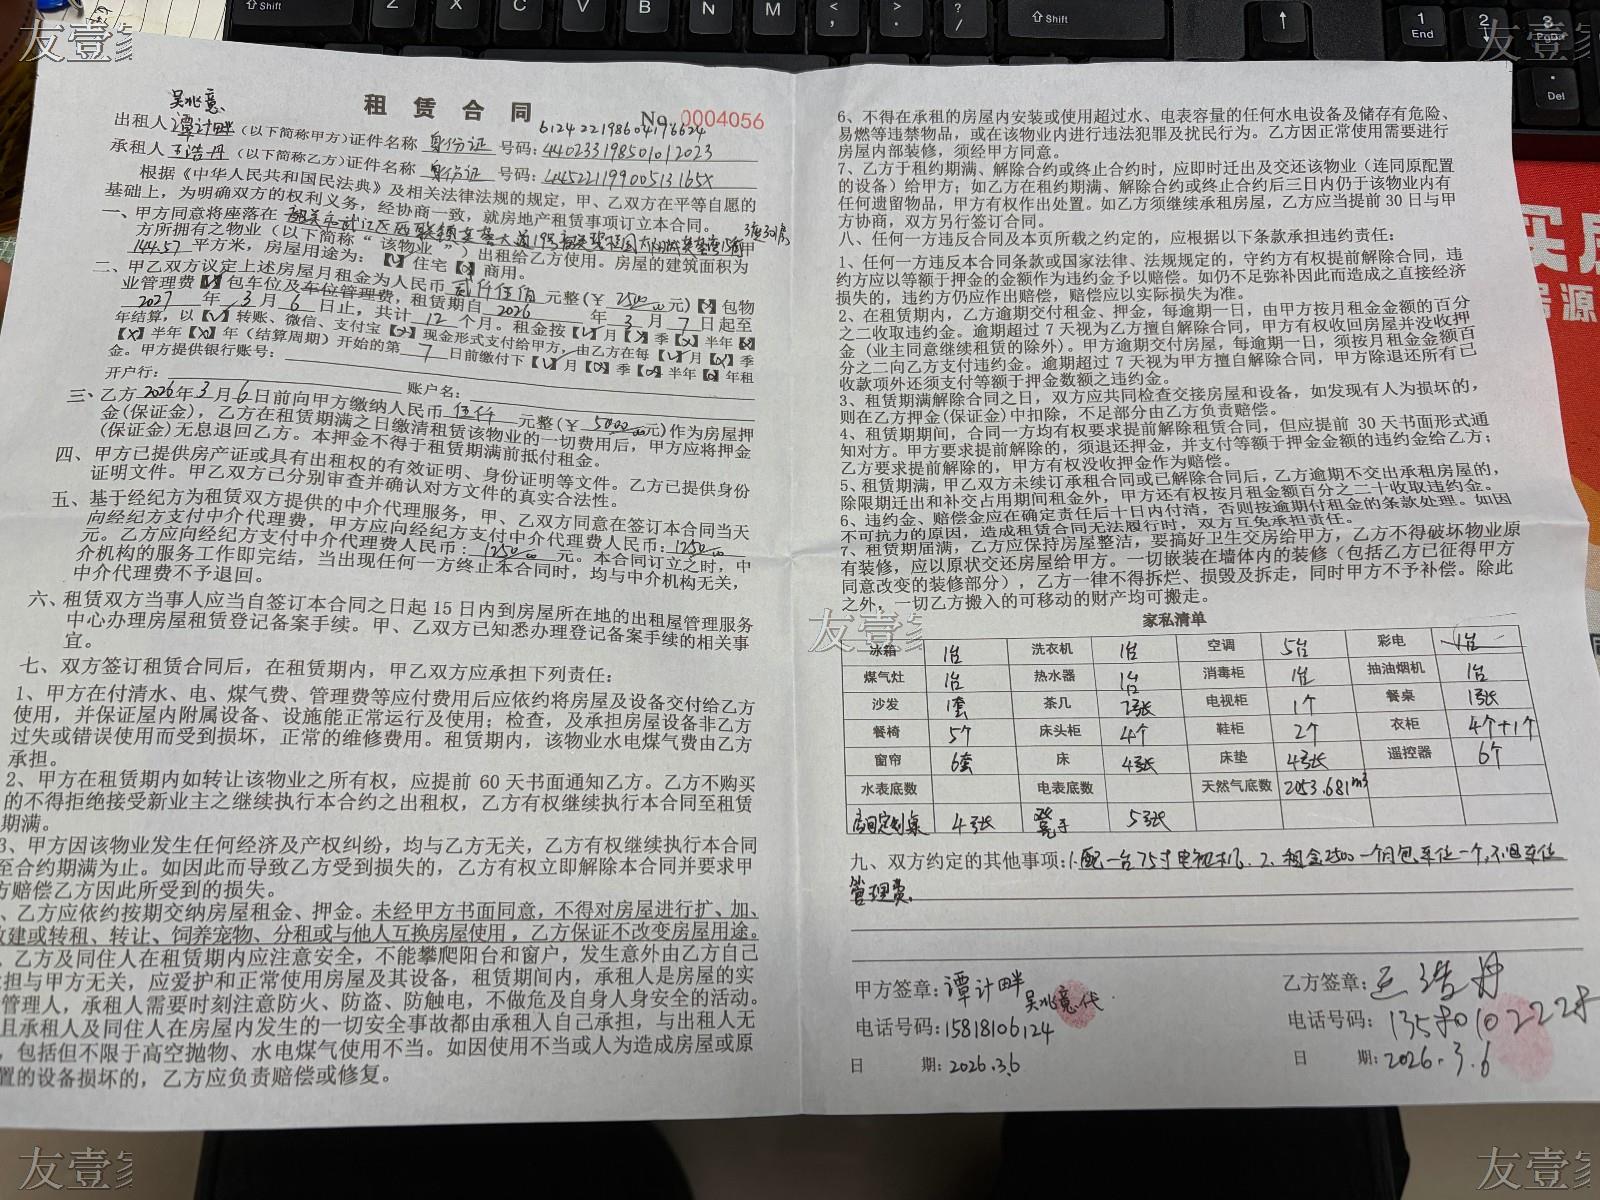 友壹家
友壹家
租赁合同
No 0004056
吴兆意
出租人 谭计畔 (以下简称甲方)证件名称 身份证 号码: 440233198501012023
612422198604196624
承租人 王浩丹 (以下简称乙方)证件名称 身份证 号码: 44522119900513165X
根据《中华人民共和国民法典》及相关法律法规的规定，甲、乙双方在平等自愿的
基础上，为明确双方的权利义务，经协商一致，就房地产租赁事项订立本合同。
一、甲方同意将座落在 韶关市武江区西联镇芙蓉大道19号
方所拥有之物业（以下简称“该物业”）出租给乙方使用。房屋的建筑面积为
144.57 平方米，房屋用途为：【√】住宅【×】商用。
二、甲乙双方议定上述房屋月租金为人民币 贰仟伍佰 元整(￥ 2500 元)【×】包物
业管理费【√】包车位及车位管理费，租赁期自 2026 年 3 月 7 日起至
2027 年 3 月 6 日止，共计 12 个月。租金按【√】月【×】季【×】半年【×】
年结算，以【√】转账、微信、支付宝【×】现金形式支付给甲方，由乙方在每【√】月【×】季
【×】半年【×】年（结算周期）开始的第 7 日前缴付下【√】月【×】季【×】半年【×】年租
金。甲方提供银行账号：
开户行： 账户名：
三、乙方 2026年 3 月 6 日前向甲方缴纳人民币 伍仟 元整(￥ 5000.00元)作为房屋押
金(保证金)，乙方在租赁期满之日缴清租赁该物业的一切费用后，甲方应将押金
(保证金)无息退回乙方。本押金不得于租赁期满前抵付租金。
四、甲方已提供房产证或具有出租权的有效证明、身份证明等文件。乙方已提供身份
证明文件。甲乙双方已分别审查并确认对方文件的真实合法性。
五、基于经纪方为租赁双方提供的中介代理服务，甲、乙双方同意在签订本合同当天
向经纪方支付中介代理费，甲方应向经纪方支付中介代理费人民币：1250.00
元。乙方应向经纪方支付中介代理费人民币：1250.00 元。本合同订立之时，中
介机构的服务工作即完结，当出现任何一方终止本合同时，均与中介机构无关，
中介代理费不予退回。
六、租赁双方当事人应当自签订本合同之日起 15 日内到房屋所在地的出租屋管理服务
中心办理房屋租赁登记备案手续。甲、乙双方已知悉办理登记备案手续的相关事
宜。
七、双方签订租赁合同后，在租赁期内，甲乙双方应承担下列责任：
1、甲方在付清水、电、煤气费、管理费等应付费用后应依约将房屋及设备交付给乙方
使用，并保证屋内附属设备、设施能正常运行及使用；检查，及承担房屋设备非乙方
过失或错误使用而受到损坏，正常的维修费用。租赁期内，该物业水电煤气费由乙方
承担。
2、甲方在租赁期内如转让该物业之所有权，应提前 60 天书面通知乙方。乙方不购买
的不得拒绝接受新业主之继续执行本合约之出租权，乙方有权继续执行本合同至租赁
期满。
3、甲方因该物业发生任何经济及产权纠纷，均与乙方无关，乙方有权继续执行本合同
至合约期满为止。如因此而导致乙方受到损失的，乙方有权立即解除本合同并要求甲
方赔偿乙方因此所受到的损失。
、乙方应依约按期交纳房屋租金、押金。未经甲方书面同意，不得对房屋进行扩、加、
改建或转租、转让、饲养宠物、分租或与他人互换房屋使用，乙方保证不改变房屋用途。
、乙方及同住人在租赁期内应注意安全，不能攀爬阳台和窗户，发生意外由乙方自己
担与甲方无关，应爱护和正常使用房屋及其设备，租赁期间内，承租人是房屋的实
管理人，承租人需要时刻注意防火、防盗、防触电，不做危及自身人身安全的活动。
且承租人及同住人在房屋内发生的一切安全事故都由承租人自己承担，与出租人无
，包括但不限于高空抛物、水电煤气使用不当。如因使用不当或人为造成房屋或原
置的设备损坏的，乙方应负责赔偿或修复。
6、不得在承租的房屋内安装或使用超过水、电表容量的任何水电设备及储存有危险、
易燃等违禁物品，或在该物业内进行违法犯罪及扰民行为。乙方因正常使用需要进行
房屋内部装修，须经甲方同意。
7、乙方于租约期满、解除合约或终止合约时，应即时迁出及交还该物业（连同原配置
的设备）给甲方；如乙方在租约期满、解除合约或终止合约后三日内仍于该物业内有
任何遗留物品，甲方有权作出处置。如乙方须继续承租房屋，乙方应当提前 30 日与甲
方协商，双方另行签订合同。
八、任何一方违反合同及本页所载之约定的，应根据以下条款承担违约责任：
1、任何一方违反本合同条款或国家法律、法规规定的，守约方有权提前解除合同，违
约方应以等额于押金的金额作为违约金予以赔偿。如仍不足弥补因此而造成之直接经济
损失的，违约方仍应作出赔偿，赔偿应以实际损失为准。
2、在租赁期内，乙方逾期交付租金、押金，每逾期一日，由甲方按月租金金额的百分
之二收取违约金。逾期超过 7 天视为乙方擅自解除合同，甲方有权收回房屋并没收押
金（业主同意继续租赁的除外）。甲方逾期交付房屋，每逾期一日，须按月租金金额百
分之二向乙方支付违约金。逾期超过 7 天视为甲方擅自解除合同，甲方除退还所有已
收款项外还须支付等额于押金数额之违约金。
3、租赁期满解除合同之日，双方应共同检查交接房屋和设备，如发现有人为损坏的，
则在乙方押金(保证金)中扣除，不足部分由乙方负责赔偿。
4、租赁期期间，合同一方均有权要求提前解除租赁合同，但应提前 30 天书面形式通
知对方。甲方要求提前解除的，须退还押金，并支付等额于押金金额的违约金给乙方；
乙方要求提前解除的，甲方有权没收押金作为赔偿。
5、租赁期满，甲乙双方未续订承租合同或已解除合同后，乙方逾期不交出承租房屋的，
除限期迁出和补交占用期间租金外，甲方还有权按月租金额百分之二十收取违约金。
6、违约金、赔偿金应在确定责任后十日内付清，否则按逾期付租金的条款处理。如因
不可抗力的原因，造成租赁合同无法履行时，双方互免承担责任。
7、租赁期届满，乙方应保持房屋整洁，要搞好卫生交房给甲方，乙方不得破坏物业原
有装修，应以原状交还房屋给甲方。一切嵌装在墙体内的装修（包括乙方已征得甲方
同意改变的装修部分），乙方一律不得拆烂、损毁及拆走，同时甲方不予补偿。除此
之外，一切乙方搬入的可移动的财产均可搬走。
友壹家
家私清单
冰箱 1台 洗衣机 1台 空调 5台 彩电 1台
煤气灶 1台 热水器 1台 消毒柜 1台 抽油烟机 1台
沙发 1套 茶几 2张 电视柜 1个 餐桌 1张
餐椅 5个 床头柜 4个 鞋柜 2个 衣柜 4个+1个
窗帘 6套 床 4张 床垫 4张 遥控器 6个
水表底数 电表底数 天然气底数 2053.681m³
房间定制桌 4张 凳子 5张
九、双方约定的其他事项：1.配一台75寸电视机. 2、租金2500一个月包车位一个,不包车位
管理费.
甲方签章：谭计畔 吴兆意代
电话号码：15818106124
日 期：2026.3.6
乙方签章：王浩丹
电话号码：13580102228
日 期：2026.3.6
友壹家
友壹家
Shift
Z
X
C
V
B
N
M
<
,
>
.
?
/
Shift
↑
1
End
2
↓
3
PgDn
.
Del
买房
源